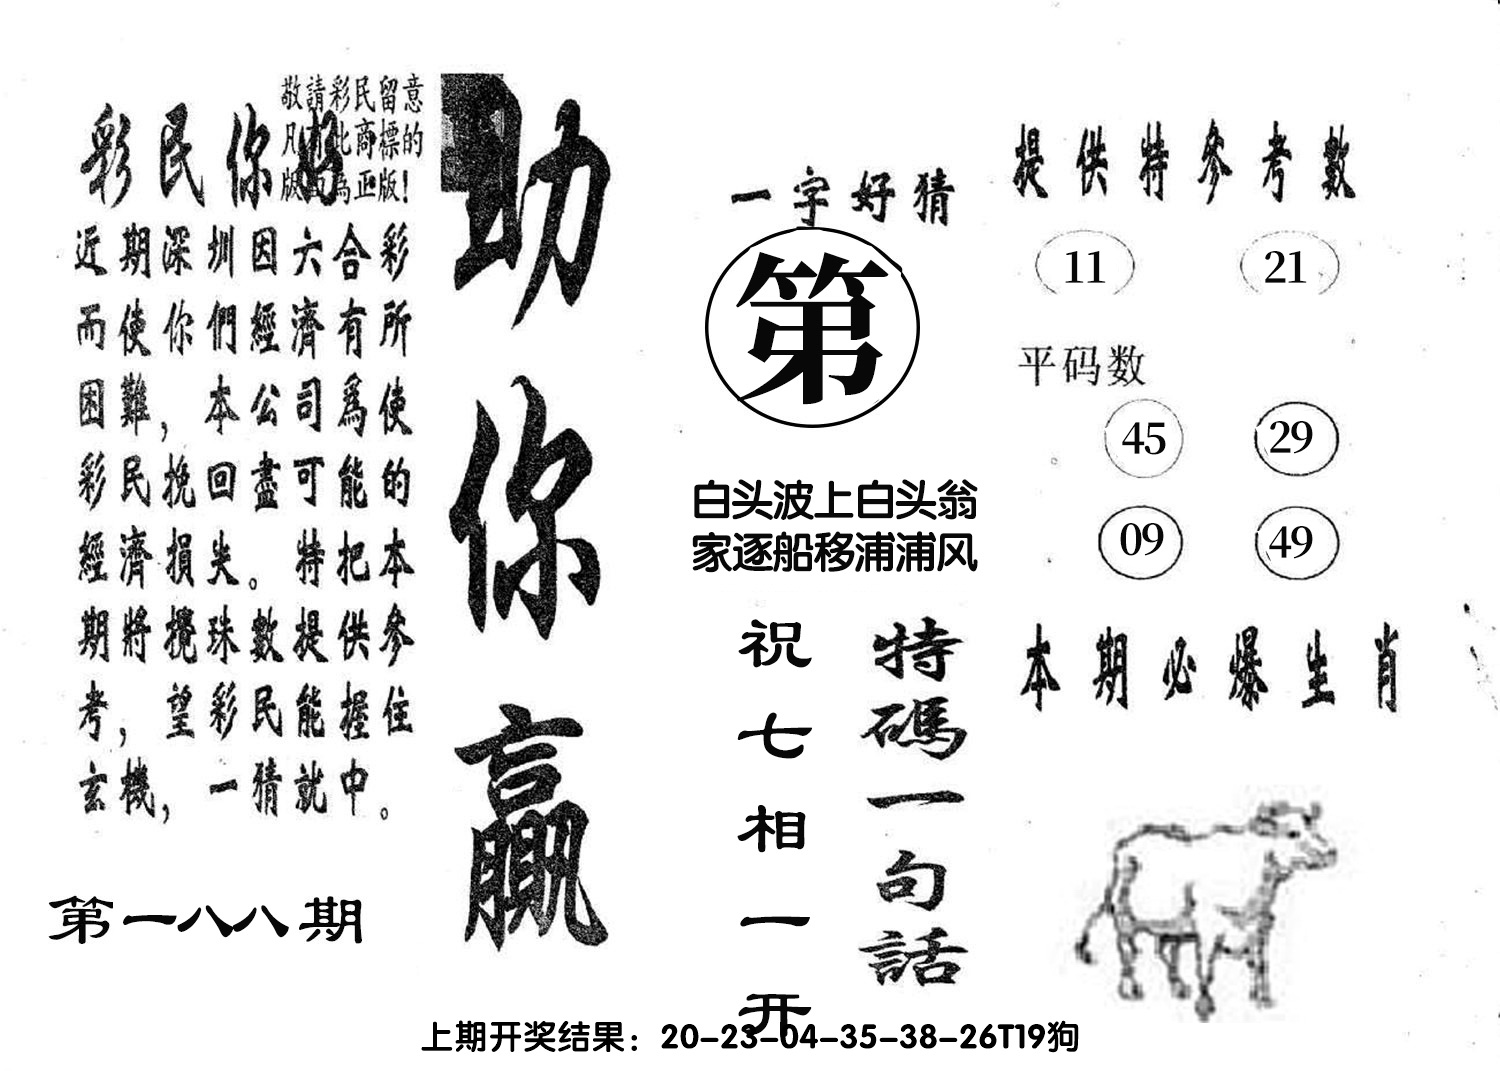 敬請彩民留意
凡有此商標的
版面為正版！
彩民你好
近期深圳因六合彩
而使你們經濟有所
困難，本公司爲使
彩民挽回盡可能的
經濟損失。特把本
期將攪珠數提供參
考，望彩民能握住
玄機，一猜就中。
第一八八期
助你贏
一字好猜
第
白头波上白头翁
家逐船移浦浦风
特碼一句話
祝七相一开
提供特參考數
11 21
平码数
45 29
09 49
本期必爆生肖
上期开奖结果：20-23-04-35-38-26T19狗